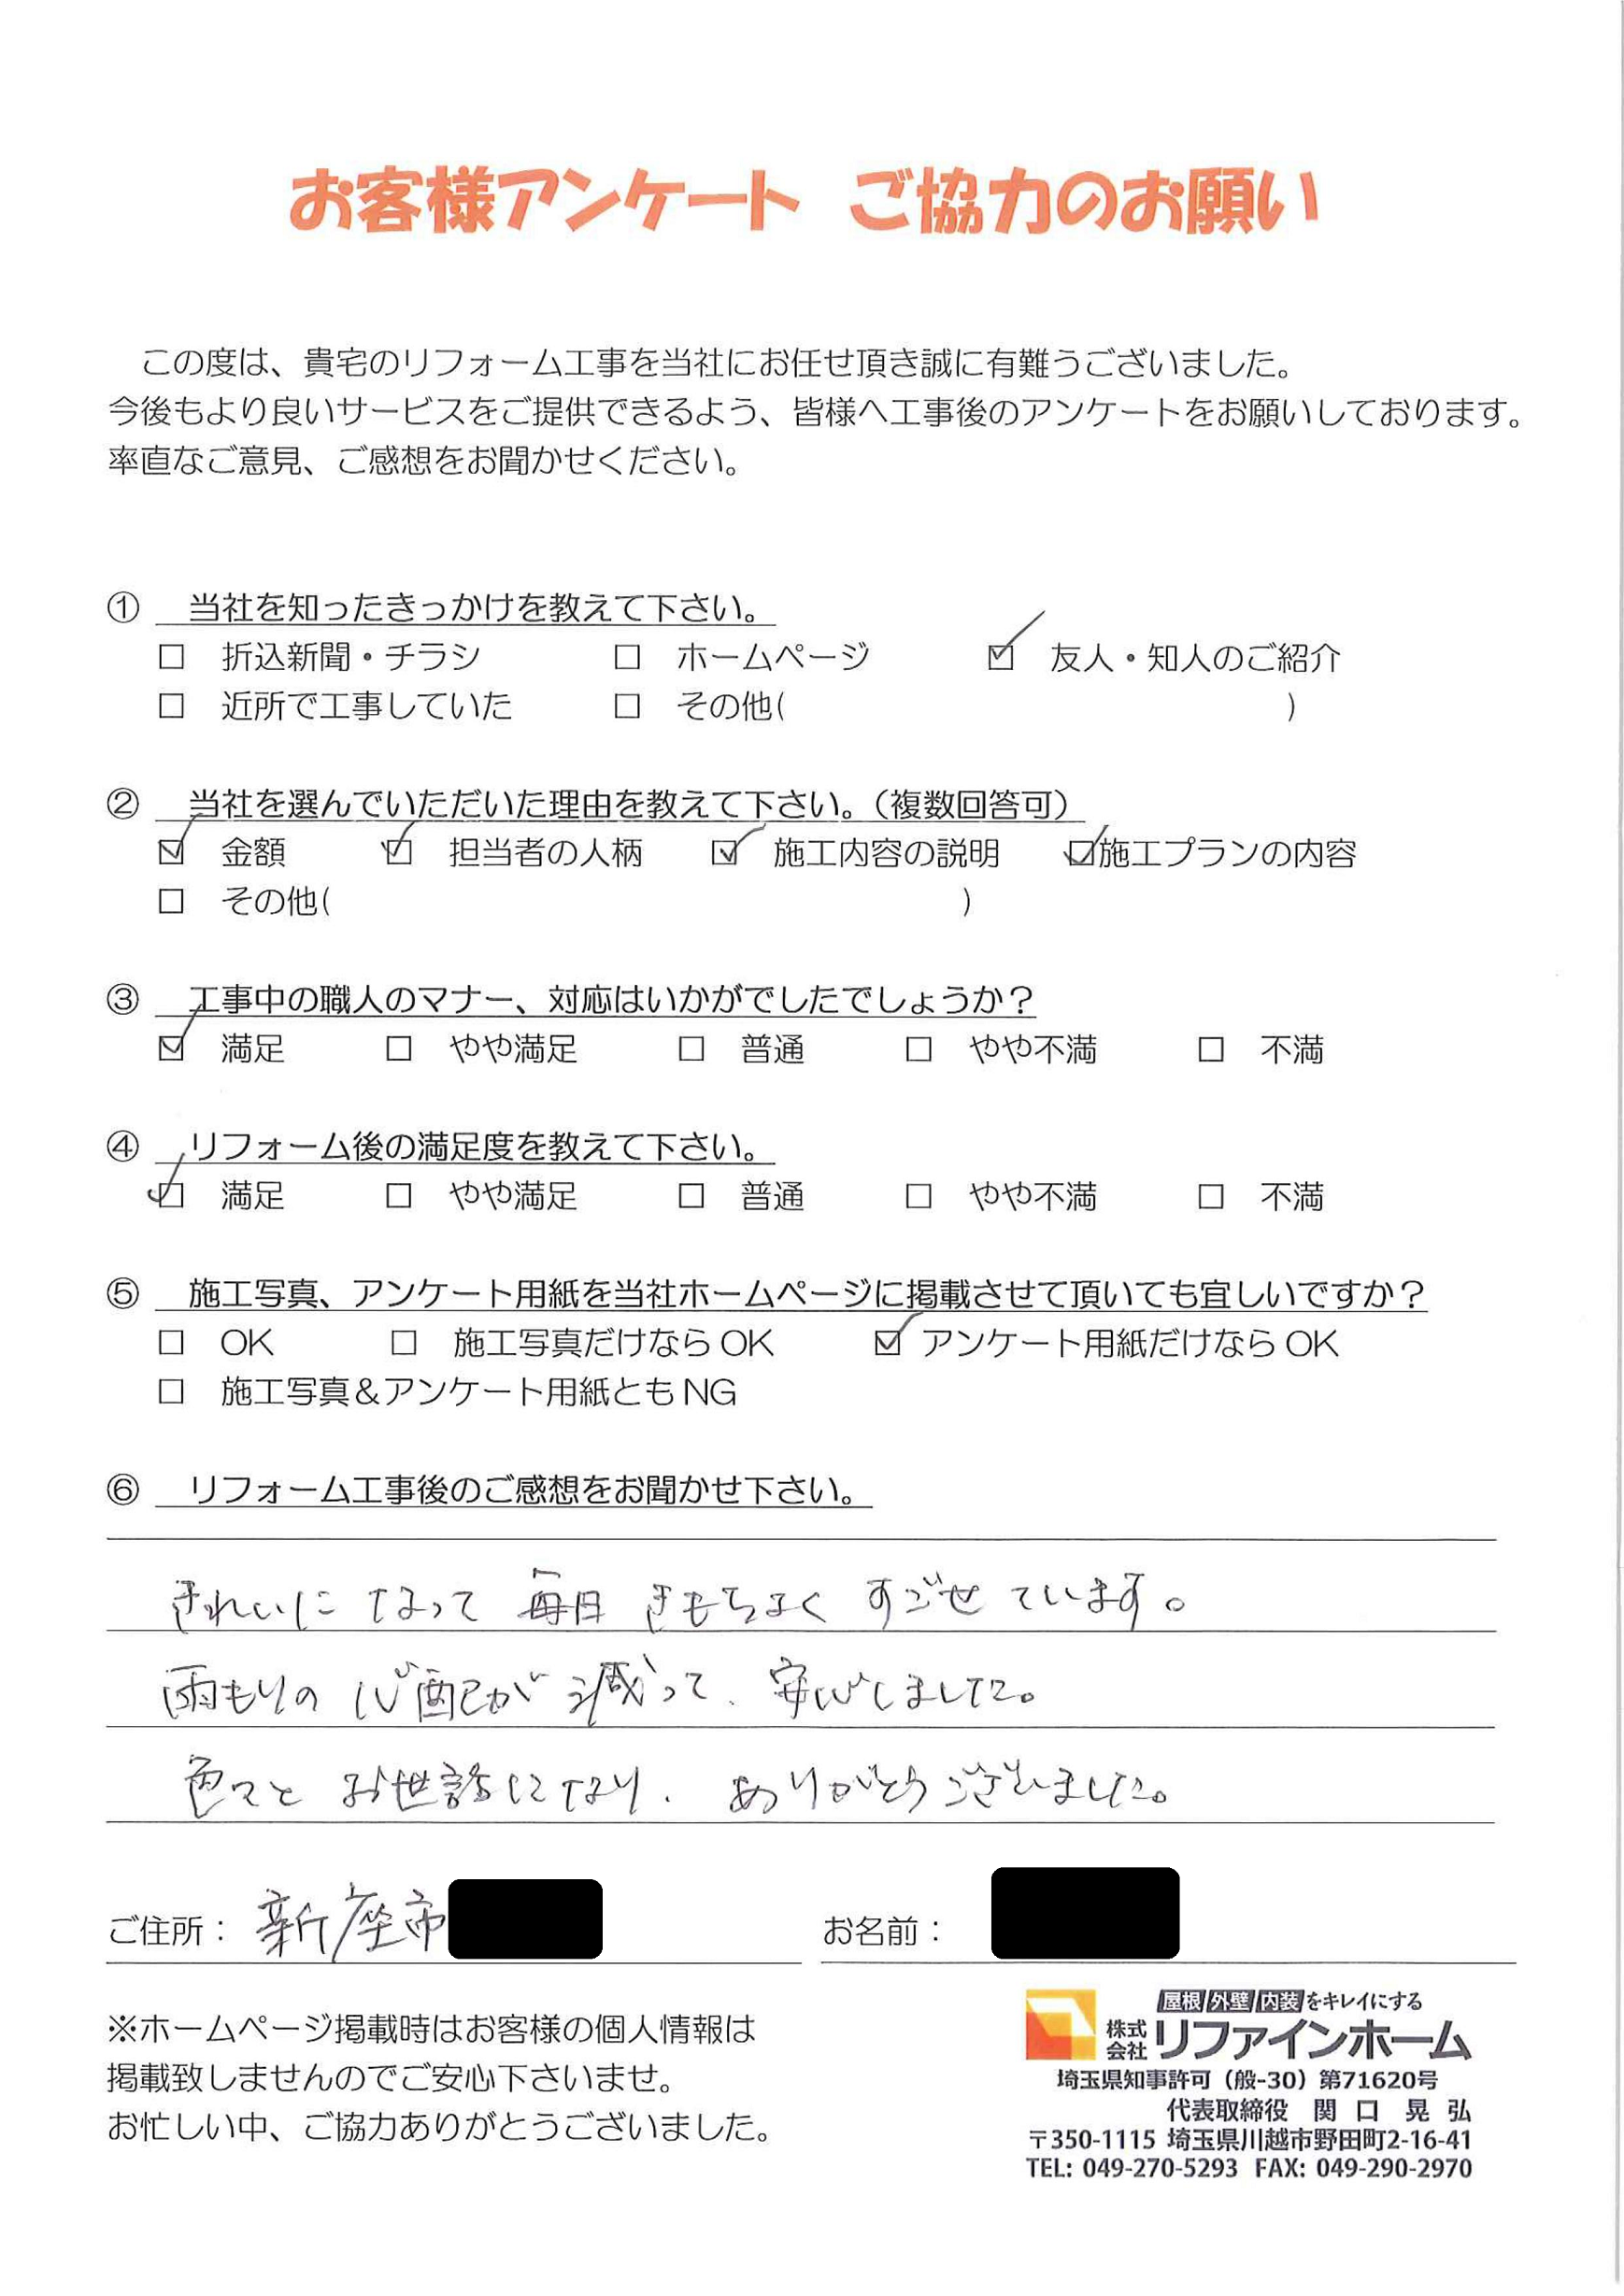 お客様アンケート ご協力のお願い
この度は、貴宅のリフォーム工事を当社にお任せ頂き誠に有難うございました。
今後もより良いサービスをご提供できるよう、皆様へ工事後のアンケートをお願いしております。
率直なご意見、ご感想をお聞かせください。
① 当社を知ったきっかけを教えて下さい。
□ 折込新聞・チラシ □ ホームページ ☑ 友人・知人のご紹介
□ 近所で工事していた □ その他( )
② 当社を選んでいただいた理由を教えて下さい。（複数回答可）
☑ 金額 ☑ 担当者の人柄 ☑ 施工内容の説明 ☑施工プランの内容
□ その他( )
③ 工事中の職人のマナー、対応はいかがでしたでしょうか？
☑ 満足 □ やや満足 □ 普通 □ やや不満 □ 不満
④ リフォーム後の満足度を教えて下さい。
☑ 満足 □ やや満足 □ 普通 □ やや不満 □ 不満
⑤ 施工写真、アンケート用紙を当社ホームページに掲載させて頂いても宜しいですか？
□ OK □ 施工写真だけなら OK ☑ アンケート用紙だけなら OK
□ 施工写真＆アンケート用紙とも NG
⑥ リフォーム工事後のご感想をお聞かせ下さい。
きれいに なって 毎日 きもちよく すごせ ています。
雨もりの 心配が 減って、安心しました。
色々と お世話になり、ありがとうございました。
ご住所： 新座市 お名前：
※ホームページ掲載時はお客様の個人情報は
掲載致しませんのでご安心下さいませ。
お忙しい中、ご協力ありがとうございました。
屋根 外壁 内装 をキレイにする
株式会社 リファインホーム
埼玉県知事許可（般-30）第71620号
代表取締役 関 口 晃 弘
〒350-1115 埼玉県川越市野田町2-16-41
TEL: 049-270-5293 FAX: 049-290-2970